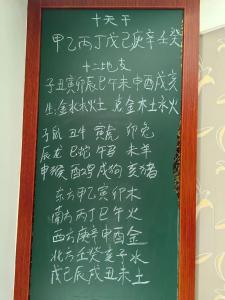 十天干
甲乙丙丁戊己庚辛壬癸
十二地支
子丑寅卯辰巳午未申酉戌亥
生:金水木火土 克金木土水火
子鼠 丑牛 寅虎 卯兔
辰龙 巳蛇 午马 未羊
申猴 酉鸡 戌狗 亥猪
东方甲乙寅卯木
南方丙丁巳午火
西方庚辛申酉金
北方壬癸亥子水
戊己辰戌丑未土